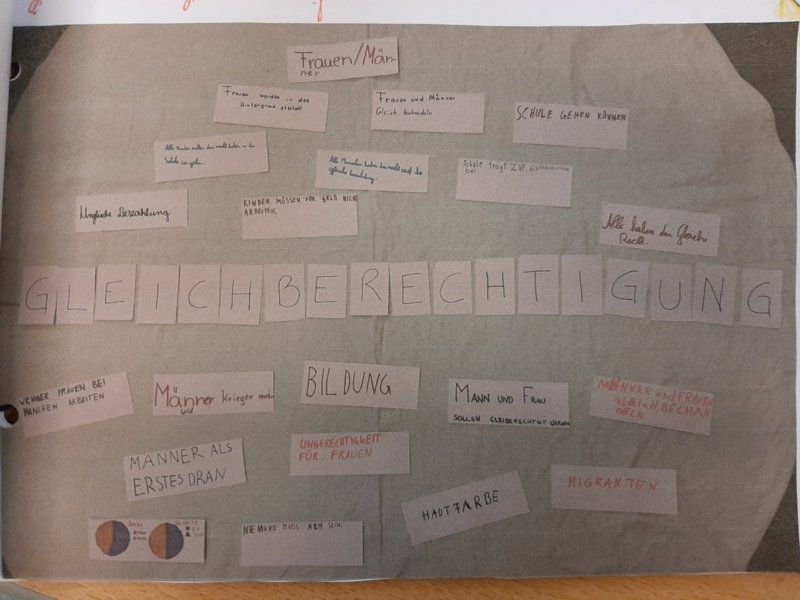 Frauen/Män-
ner
Frauen werden in den
Hintergrund gestellt
Frauen und Männer
Gleich behandeln
SCHULE GEHEN KÖNNEN
Alle Kinder sollen das recht haben in die
Schule zu gehen.
Alle Menschen haben das recht auf die
gleiche bezahlung.
Schule tragt zur
bei
Ungleiche Bezahlung
KINDER MÜSSEN FÜR GELD NICH
ARBEITEN.
Alle haben den Gleiche
Recht.
GLEICHBERECHTIGUNG
WENIGER FRAUEN BEI
MANCHEN ARBEITEN
Männer kriegen mehr
geld
BILDUNG
MANN UND FRAU
SOLLEN GLEIBERECHTIGT WERDEN
MÄNNER und FRAUEN
GLEICH BECHAN
DELN
MÄNNER ALS
ERSTES DRAN
UNGERECHTIGKEIT
FÜR FRAUEN
HAUTFARBE
MIGRANTEN
JETZT
NIEMAND MUSS ARM SEIN.